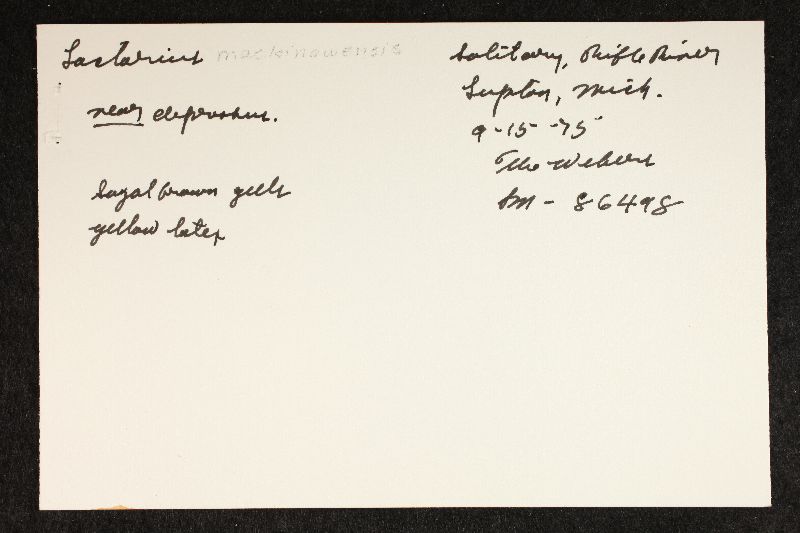 Lactarius mackinawensis
near deprobus.
Sayal brown gills
yellow latex
Solitary, Rifle River
Lupton, Mich.
9-15-75
The Webers
Sm - 86498